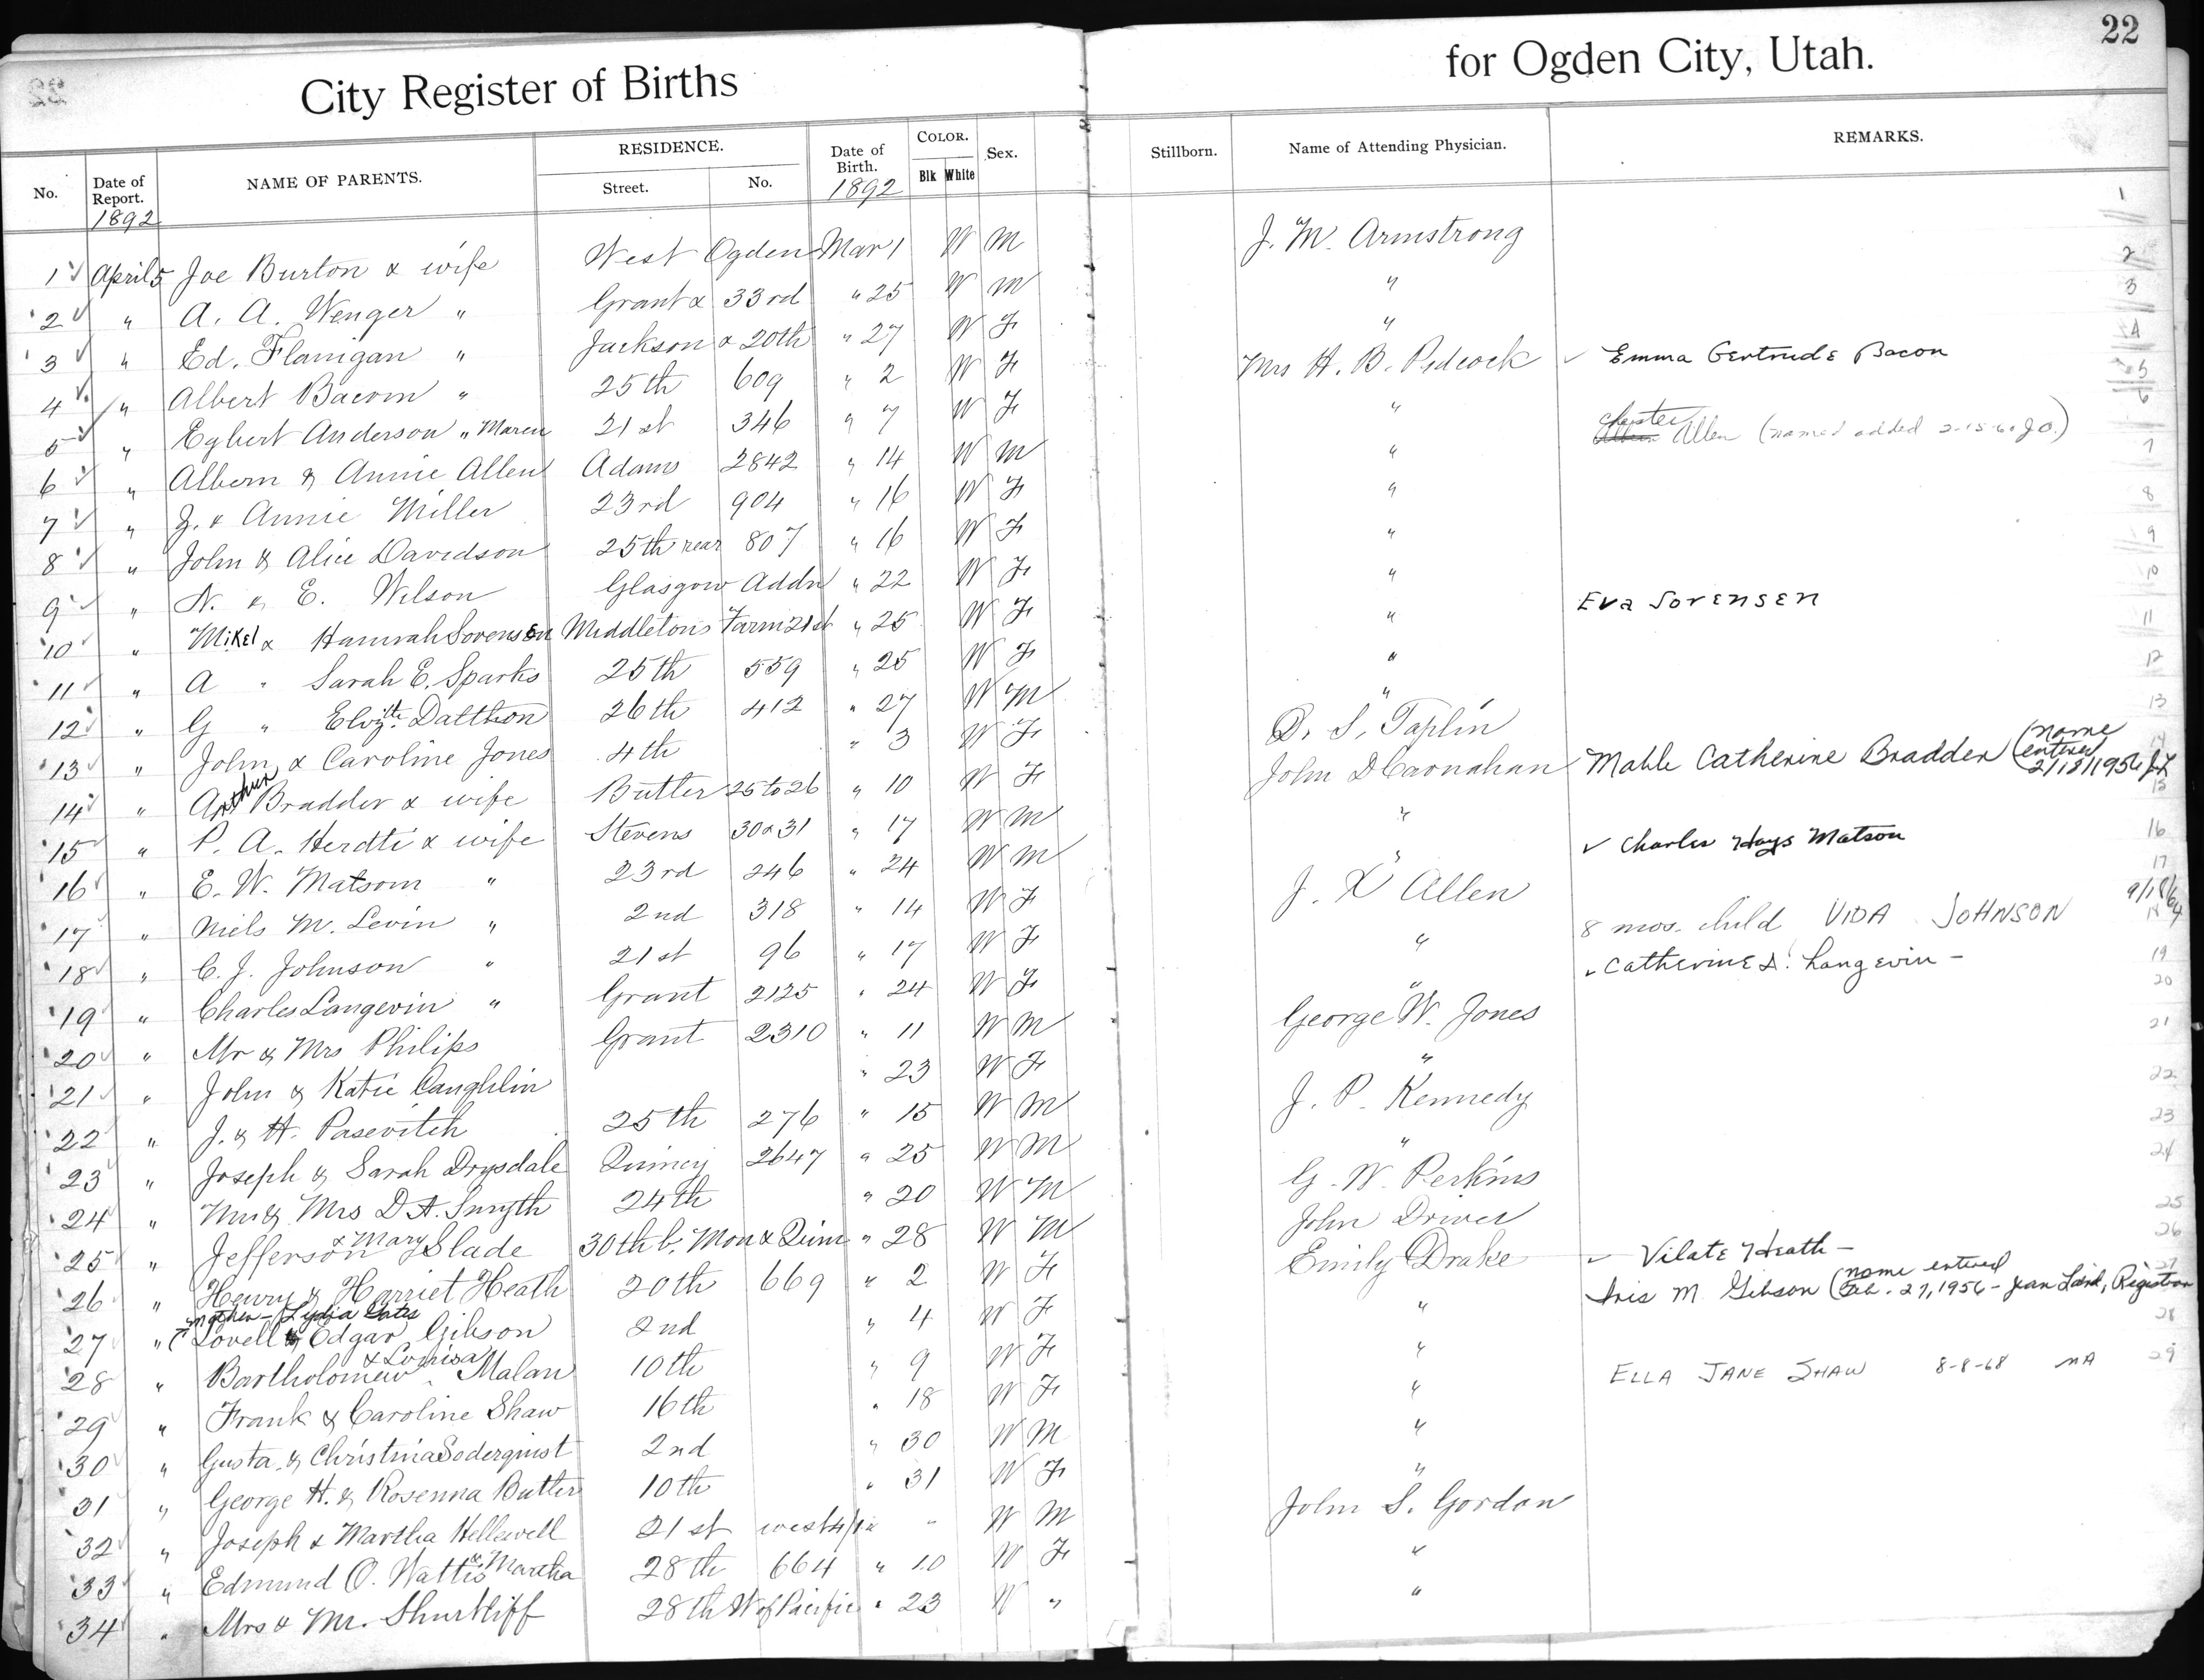 22
City Register of Births for Ogden City, Utah.
No. Date of Report. NAME OF PARENTS. RESIDENCE. Street. No. Date of Birth. COLOR. Blk White Sex. Stillborn. Name of Attending Physician. REMARKS.
1892 1892
1 April 5 Joe Burton & wife West Ogden Mar 1 W M J. M. Armstrong 1
2 " A. A. Wenger " Grant & 33rd " 25 W M " 2
3 " Ed. Flanigan " Jackson & 20th " 27 W F " 3
4 " Albert Bacon " 25th 609 " 2 W F Mrs H. B. Pidcock Emma Gertrude Bacon 4
5 " Egbert Anderson " Maren 21st 346 " 7 W F " 5
6 " Albern & Annie Allen Adams 2842 " 14 W M " Chester Allen (name added 2-15-6 J.O.) 6
7 " Z. & Annie Miller 23rd 904 " 16 W F " 7
8 " John & Alice Davidson 25th rear 807 " 16 W F " 8
9 " N. & E. Wilson Glasgow Addn " 22 W F " 9
10 " Mikel & Hannah Sorensen Middletons Farm 21st " 25 W F " Eva Sorensen 10
11 " A " Sarah E. Sparks 25th 559 " 25 W F " 11
12 " G " Elizth. Dalthon 26th 412 " 27 W M " 12
13 " John & Caroline Jones 4th " 3 W F D. S. Taplin 13
14 " Arthur Bradder & wife Butler 25 to 26 " 10 W F John D Carnahan Mable Catherine Bradder (name entered 2/13/1956 JL 14
15 " P. A. Herdti & wife Stevens 30 & 31 " 17 W M " 15
16 " E. W. Matson " 23rd 246 " 24 W M " Charles Hays Matson 16
17 " Niels M. Levin " 2nd 318 " 14 W F J. X Allen 17
18 " C. J. Johnson " 21st 96 " 17 W F " 8 mos. child VIDA JOHNSON 9/18/64 18
19 " Charles Langevin " Grant 2125 " 24 W F " Catherine A. Langevin - 19
20 " Mr & Mrs Philips Grant 2310 " 11 W M George W. Jones 20
21 " John & Katie Caughlin " 23 W F " 21
22 " J. & H. Pasevitch 25th 276 " 15 W M J. P. Kennedy 22
23 " Joseph & Sarah Drysdale Quincy 2647 " 25 W M " 23
24 " Mr & Mrs D A. Smyth 24th " 20 W M G. W. Perkins 24
25 " Jefferson & Mary Slade 30th b. Mon & Quin " 28 W M John Driver 25
26 " Henry & Harriet Heath 20th 669 " 2 W F Emily Drake Vilate Heath - 26
mother - Lydia Gates
27 " Lovell & Edgar Gibson 2nd " 4 W F " Iris M Gibson (name entered Feb. 27, 1956 - Jean Laird, Registrar 27
28 " Bartholomew & Louisa Malan 10th " 9 W F " 28
29 " Frank & Caroline Shaw 16th " 18 W F " ELLA JANE SHAW 8-8-68 MA 29
30 " Gusta. & Christina Soderquist 2nd " 30 W M "
31 " George H. & Rosenna Butler 10th " 31 W F "
32 " Joseph & Martha Hellewell 21st west " W M John S. Gordon
33 " Edmund O. Wattis & Martha 28th 664 " 10 W F "
34 " Mrs & Mr. Shurtliff 28th W of Pacific " 23 W " "